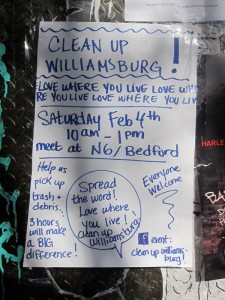 CLEAN UP
WILLIAMSBURG!
LOVE WHERE YOU LIVE LOVE WH
RE YOU LIVE LOVE WHERE YOU LIV
SATURDAY Feb 4th
10am - 1pm
meet at N6/Bedford
Help us
pick up
trash +
debris.
3 hours
will make
a BIG
difference!
Spread
the word!
Love where
you live!
clean up
williamsburg
Everyone
Welcome
event:
clean up williams-
burg!
HARLE